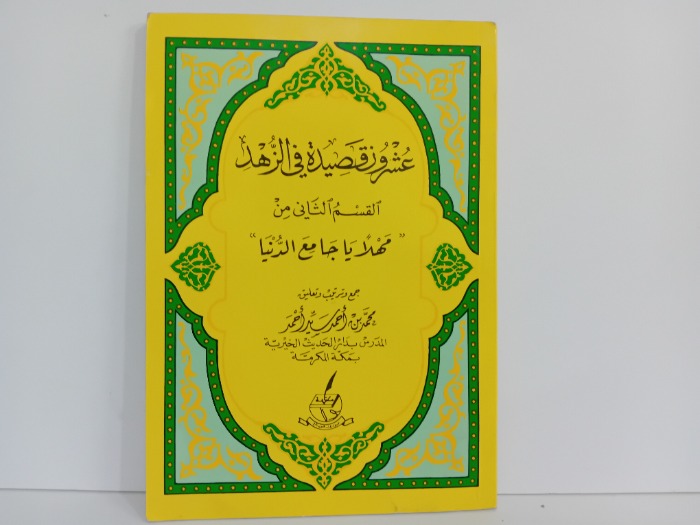 عُشْرُونَ قَصِيدَة فِي الزُّهْدِ
القِسْمُ الثَّانِي مِنْ
"مَهْلًا يَا جَامِعَ الدُّنْيَا"
جمع وترتيب وتعليق
محمّد بن أحمد سيد أحمد
المدرس بدار الحديث الخيرية
بمكة المكرمة